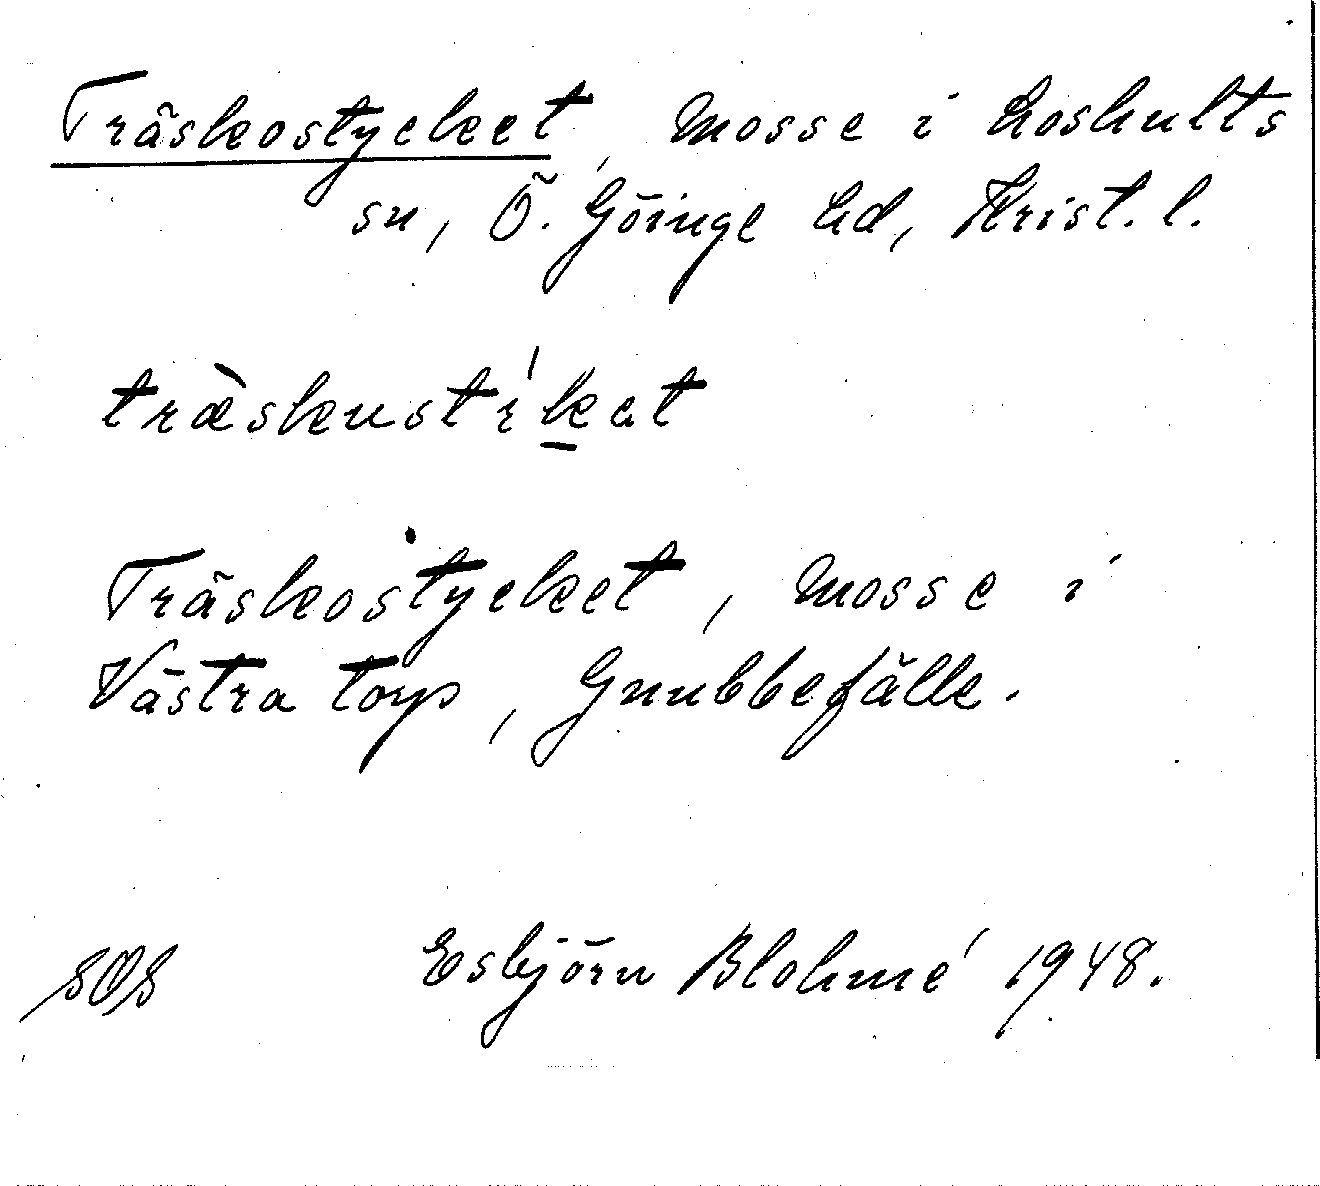 Träskostycket, mosse i Loshults
sn, Ö. Göinge hd, Krist. l.
træ̀skustík̲at
Träskostycket, mosse i
Västra Torp, Gnubbefälle.
SOS Esbjörn Blohmé 1948.